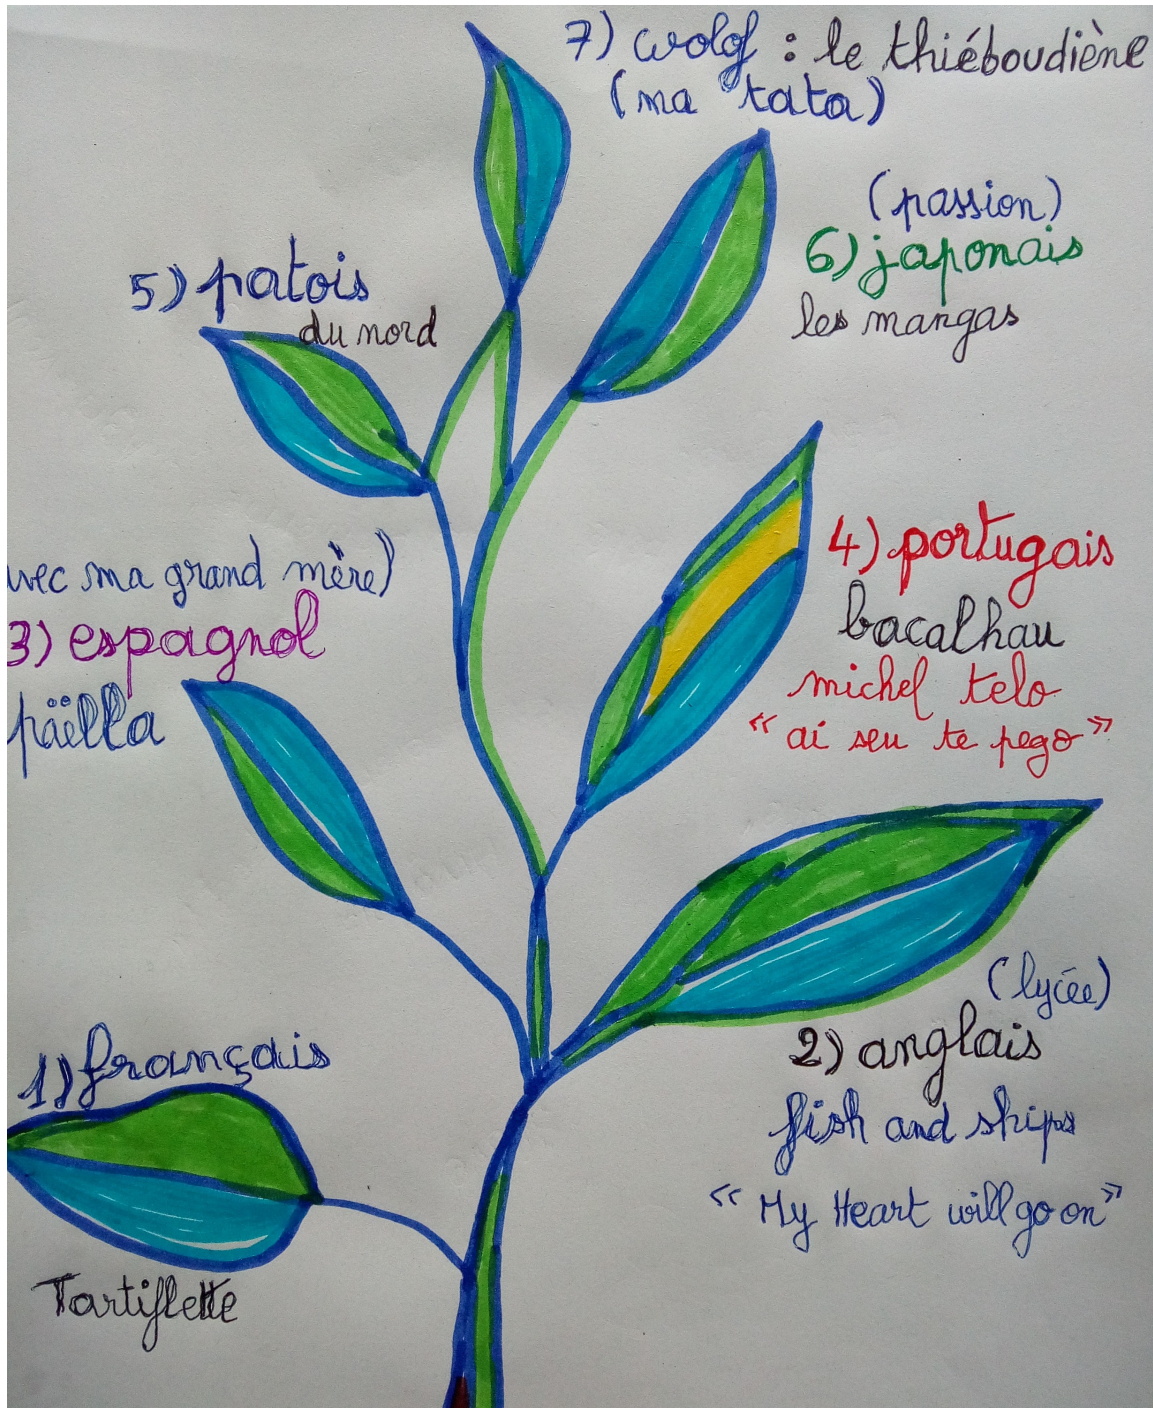 7) wolof : le thiéboudiène
(ma tata)
(passion)
6) japonais
les mangas
5) patois
du nord
4) portugais
bacalhau
michel telo
"ai seu te pego"
avec ma grand mère)
3) espagnol
päëlla
(lycée)
2) anglais
fish and ships
"My Heart will go on"
1) français
Tartiflette